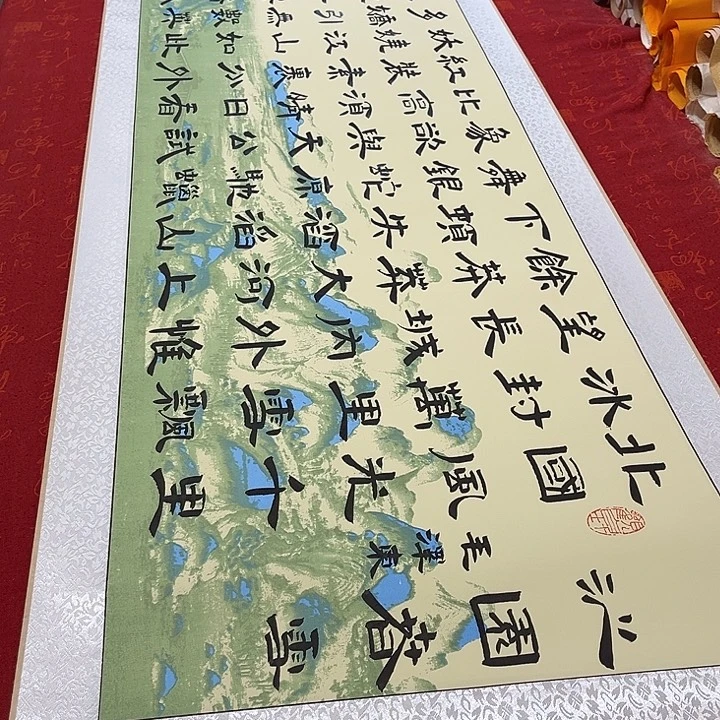 沁園春雪
毛澤東
北國風光千里
冰封萬里雪飄
望長城內外惟
餘莽莽大河上
下頓失滔滔山
舞銀蛇原馳蠟
象欲與天公試
比高須晴日看
紅裝素裹分外
妖嬈江山如此
多嬌引